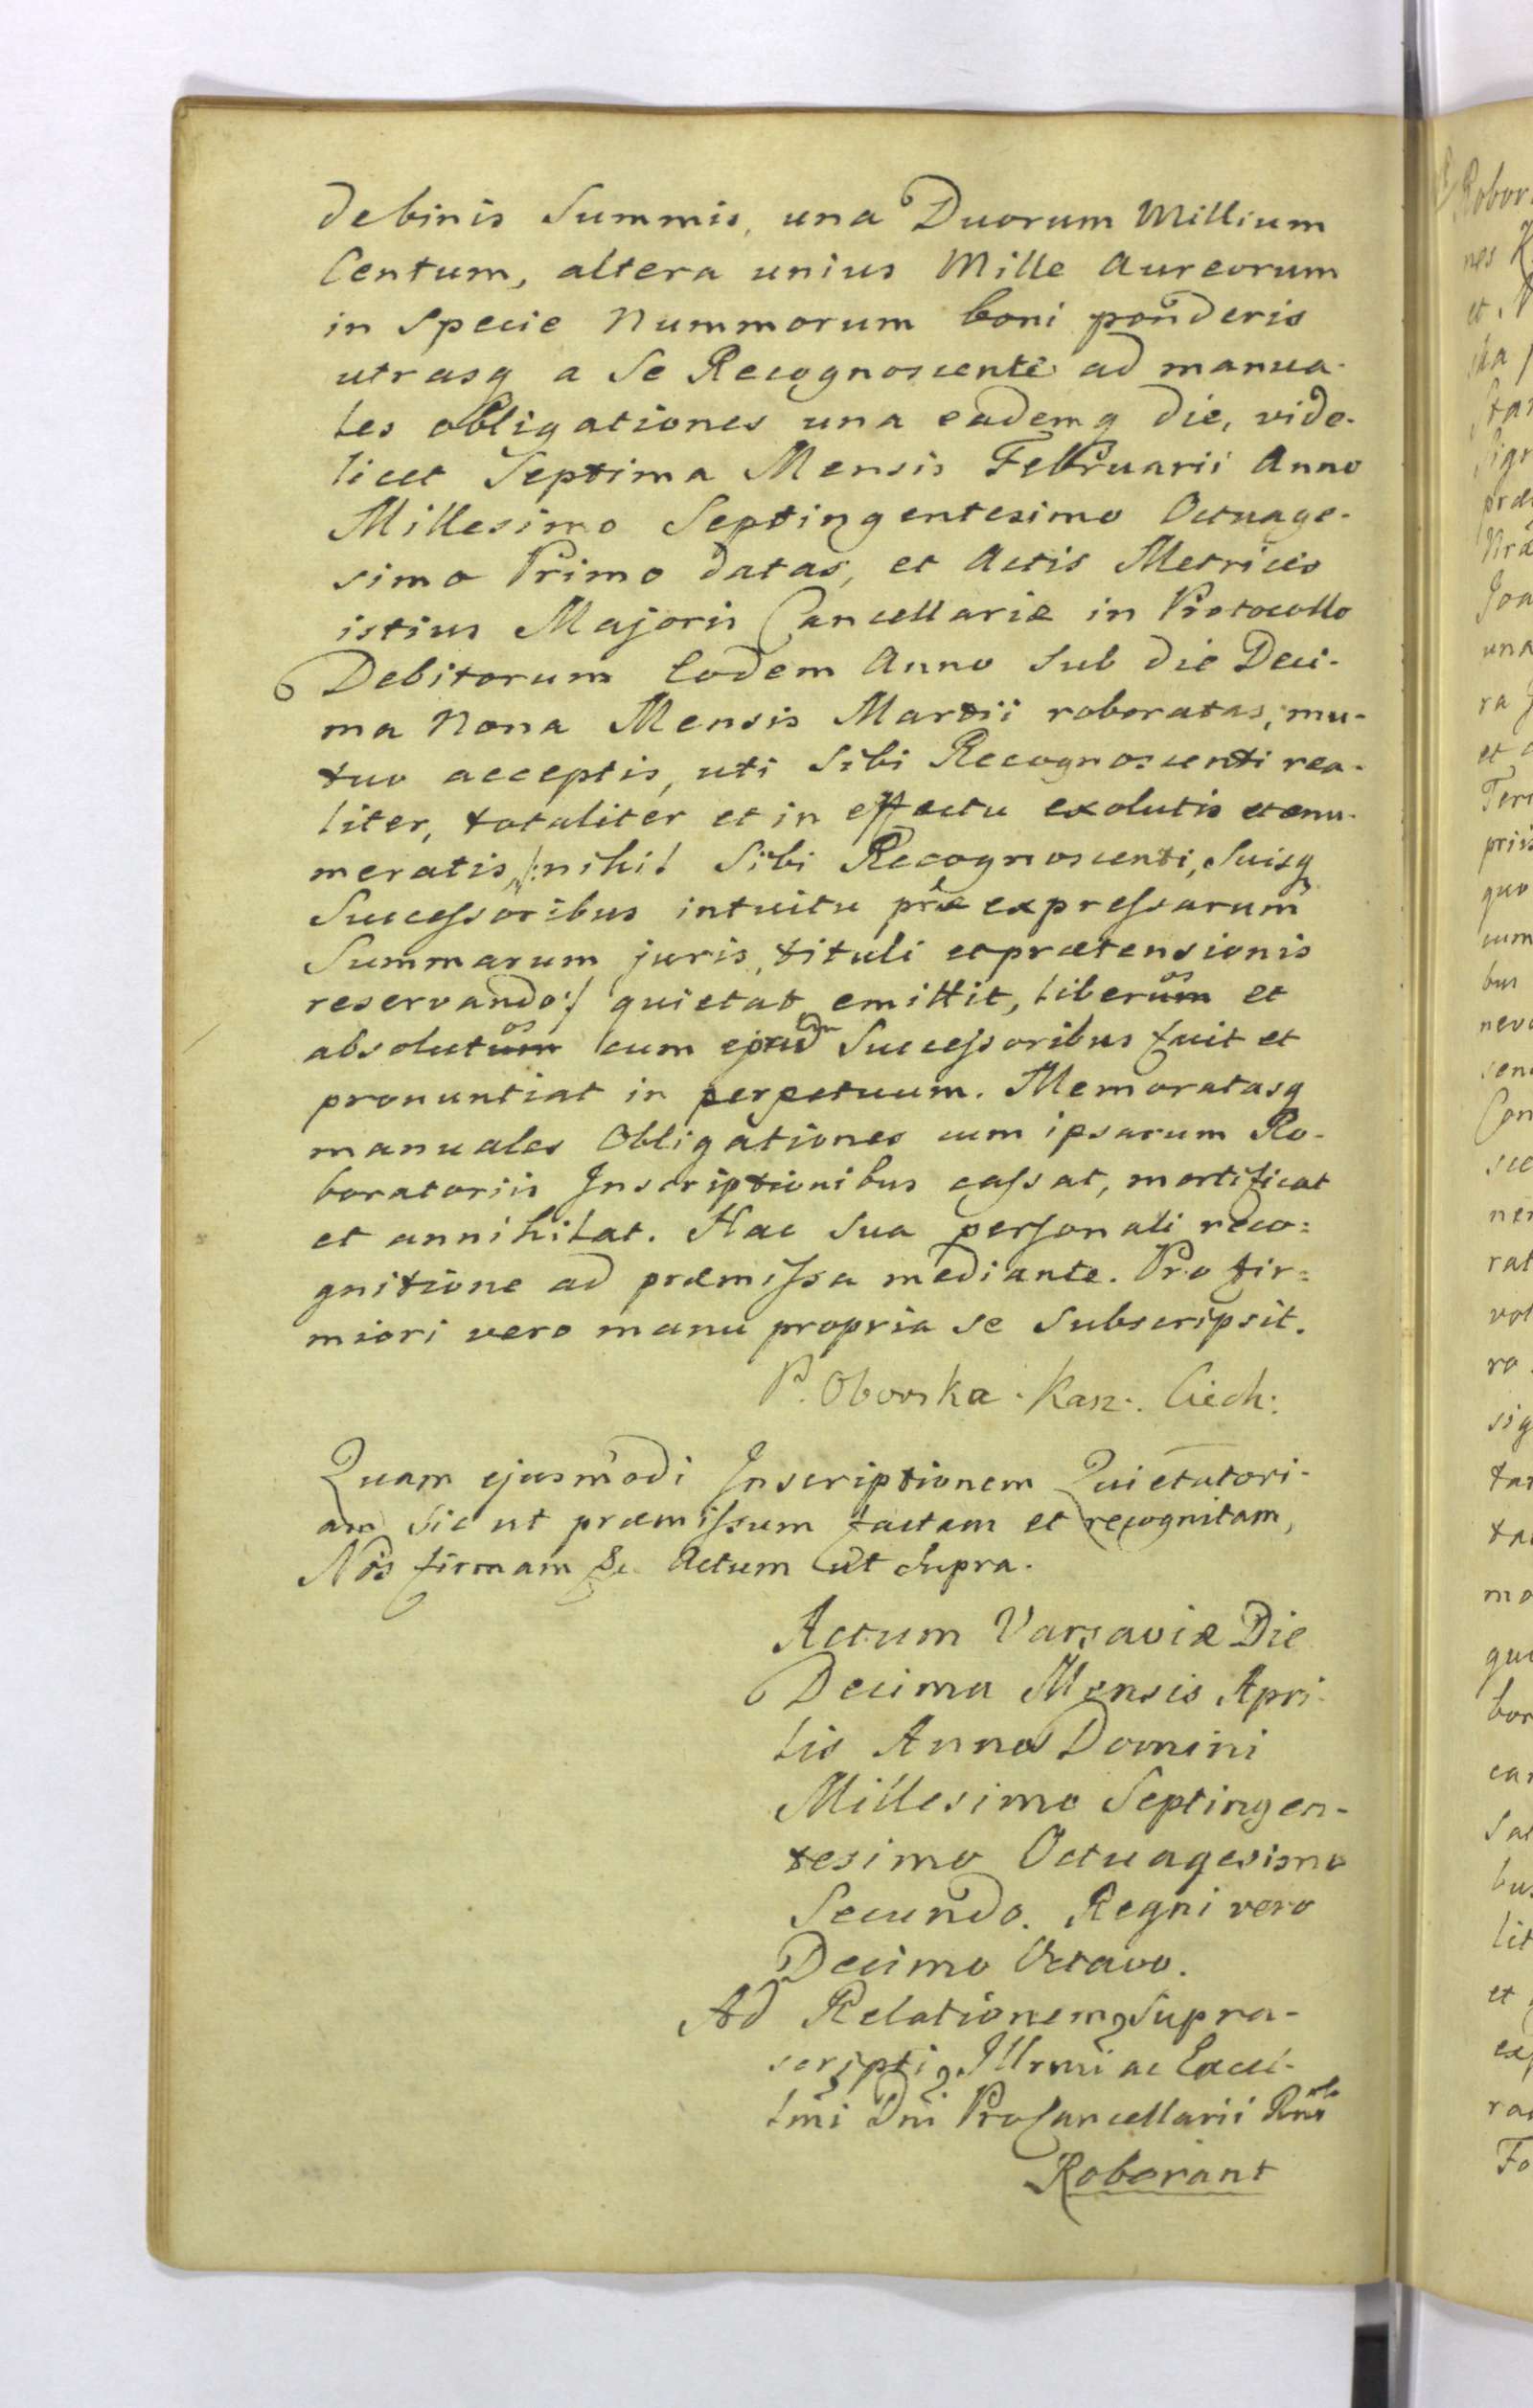 de binis Summis, una Duorum Millium
Centum, altera unius Mille Aureorum
in Specie Nummorum boni ponderis
utrasq a Se Recognoscente ad manua-
les obligationes una eademq die, vide-
licet Septima Mensis Februarii Anno
Millesimo Septingentesimo Octuage-
simo Primo datas, et Actis Metrices
istius Majoris Cancellariæ in Protocollo
Debitorum Eodem Anno Sub die Deci-
ma Nona Mensis Martii roboratas, mu-
tuo acceptis, uti Sibi Recognoscenti rea-
liter, totaliter et in effectu exolutis et enu-
meratis /:nihil Sibi Recognoscenti, Suisq
Successoribus intuitu præexpressarum
Summarum juris, tituli et prætensionis
reservando:/ quietat emittit, liberos et
absolutos cum Successoribus facit et
pronuntiat in perpetuum. Memoratasq
manuales Obligationes cum ipsarum Ro-
boratoriis Inscriptionibus cassat, mortificat
et annihilat. Hac Sua personali reco=
gnitione ad præmissa mediante. Pro fir=
miori vero manu propria se Subscripsit.
P. Oborska Kasz. Ciech:
Quam ejusmodi Inscriptionem Quietatori-
am Sic ut præmissum factam et recognitam,
Nos firmam &c Actum ut Supra.
Actum Varsaviæ Die
Decima Mensis Apri-
lis Anno Domini
Millesimo Septingen-
tesimo Octuagesimo
Secundo. Regni vero
Decimo Octavo.
Ad Relationem Supra-
scripti Illrmi ac Excel-
lmi Dni ProCancellarii Rni
Roborant